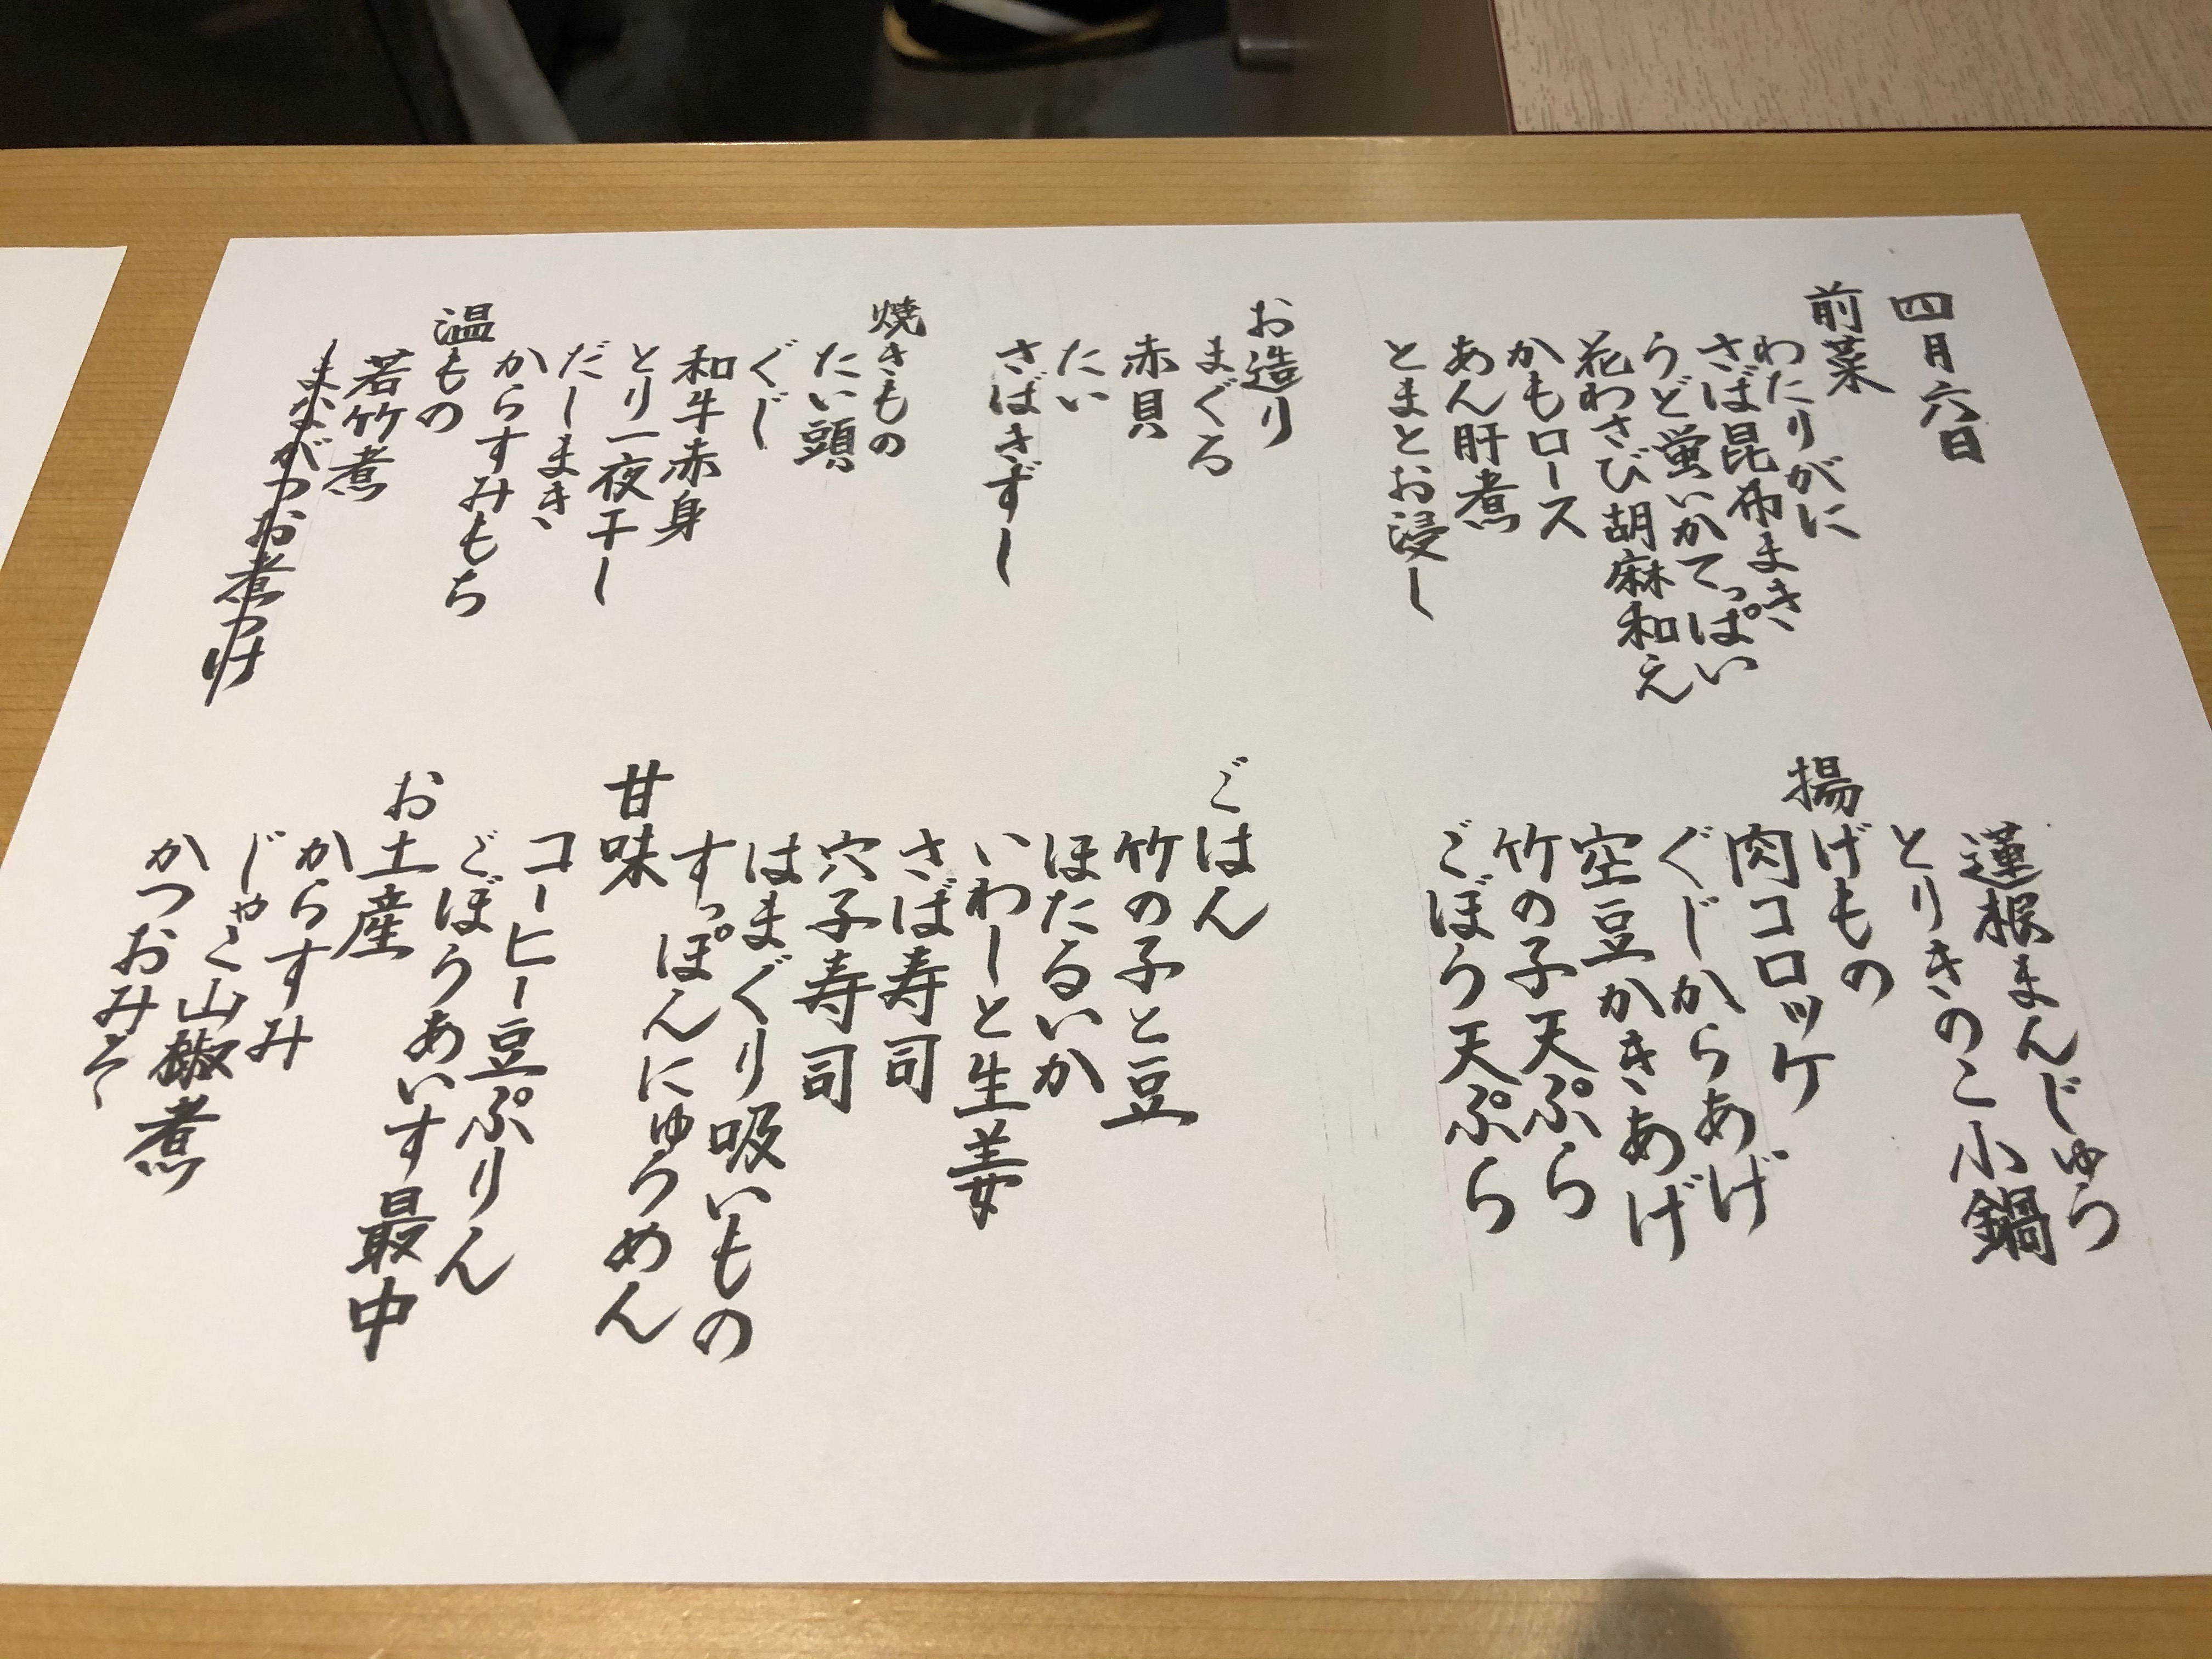 四月六日
前菜
わたりがに
さば昆布まき
うど蛍いかてっぱい
花わさび胡麻和え
かもロース
あん肝煮
とまとお浸し
お造り
まぐろ
赤貝
たい
さばきずし
焼きもの
たい頭
ぐじ
和牛赤身
とり一夜干し
だしまき
からすみもち
温もの
若竹煮
まながつお煮つけ
蓮根まんじゅう
とりきのこ小鍋
揚げもの
肉コロッケ
ぐじからあげ
空豆かきあげ
竹の子天ぷら
ごぼう天ぷら
ごはん
竹の子と豆
ほたるいか
いわしと生姜
さば寿司
穴子寿司
はまぐり吸いもの
すっぽんにゅうめん
甘味
コーヒー豆ぷりん
ごぼうあいす最中
お土産
からすみ
じゃこ山椒煮
かつおみそ